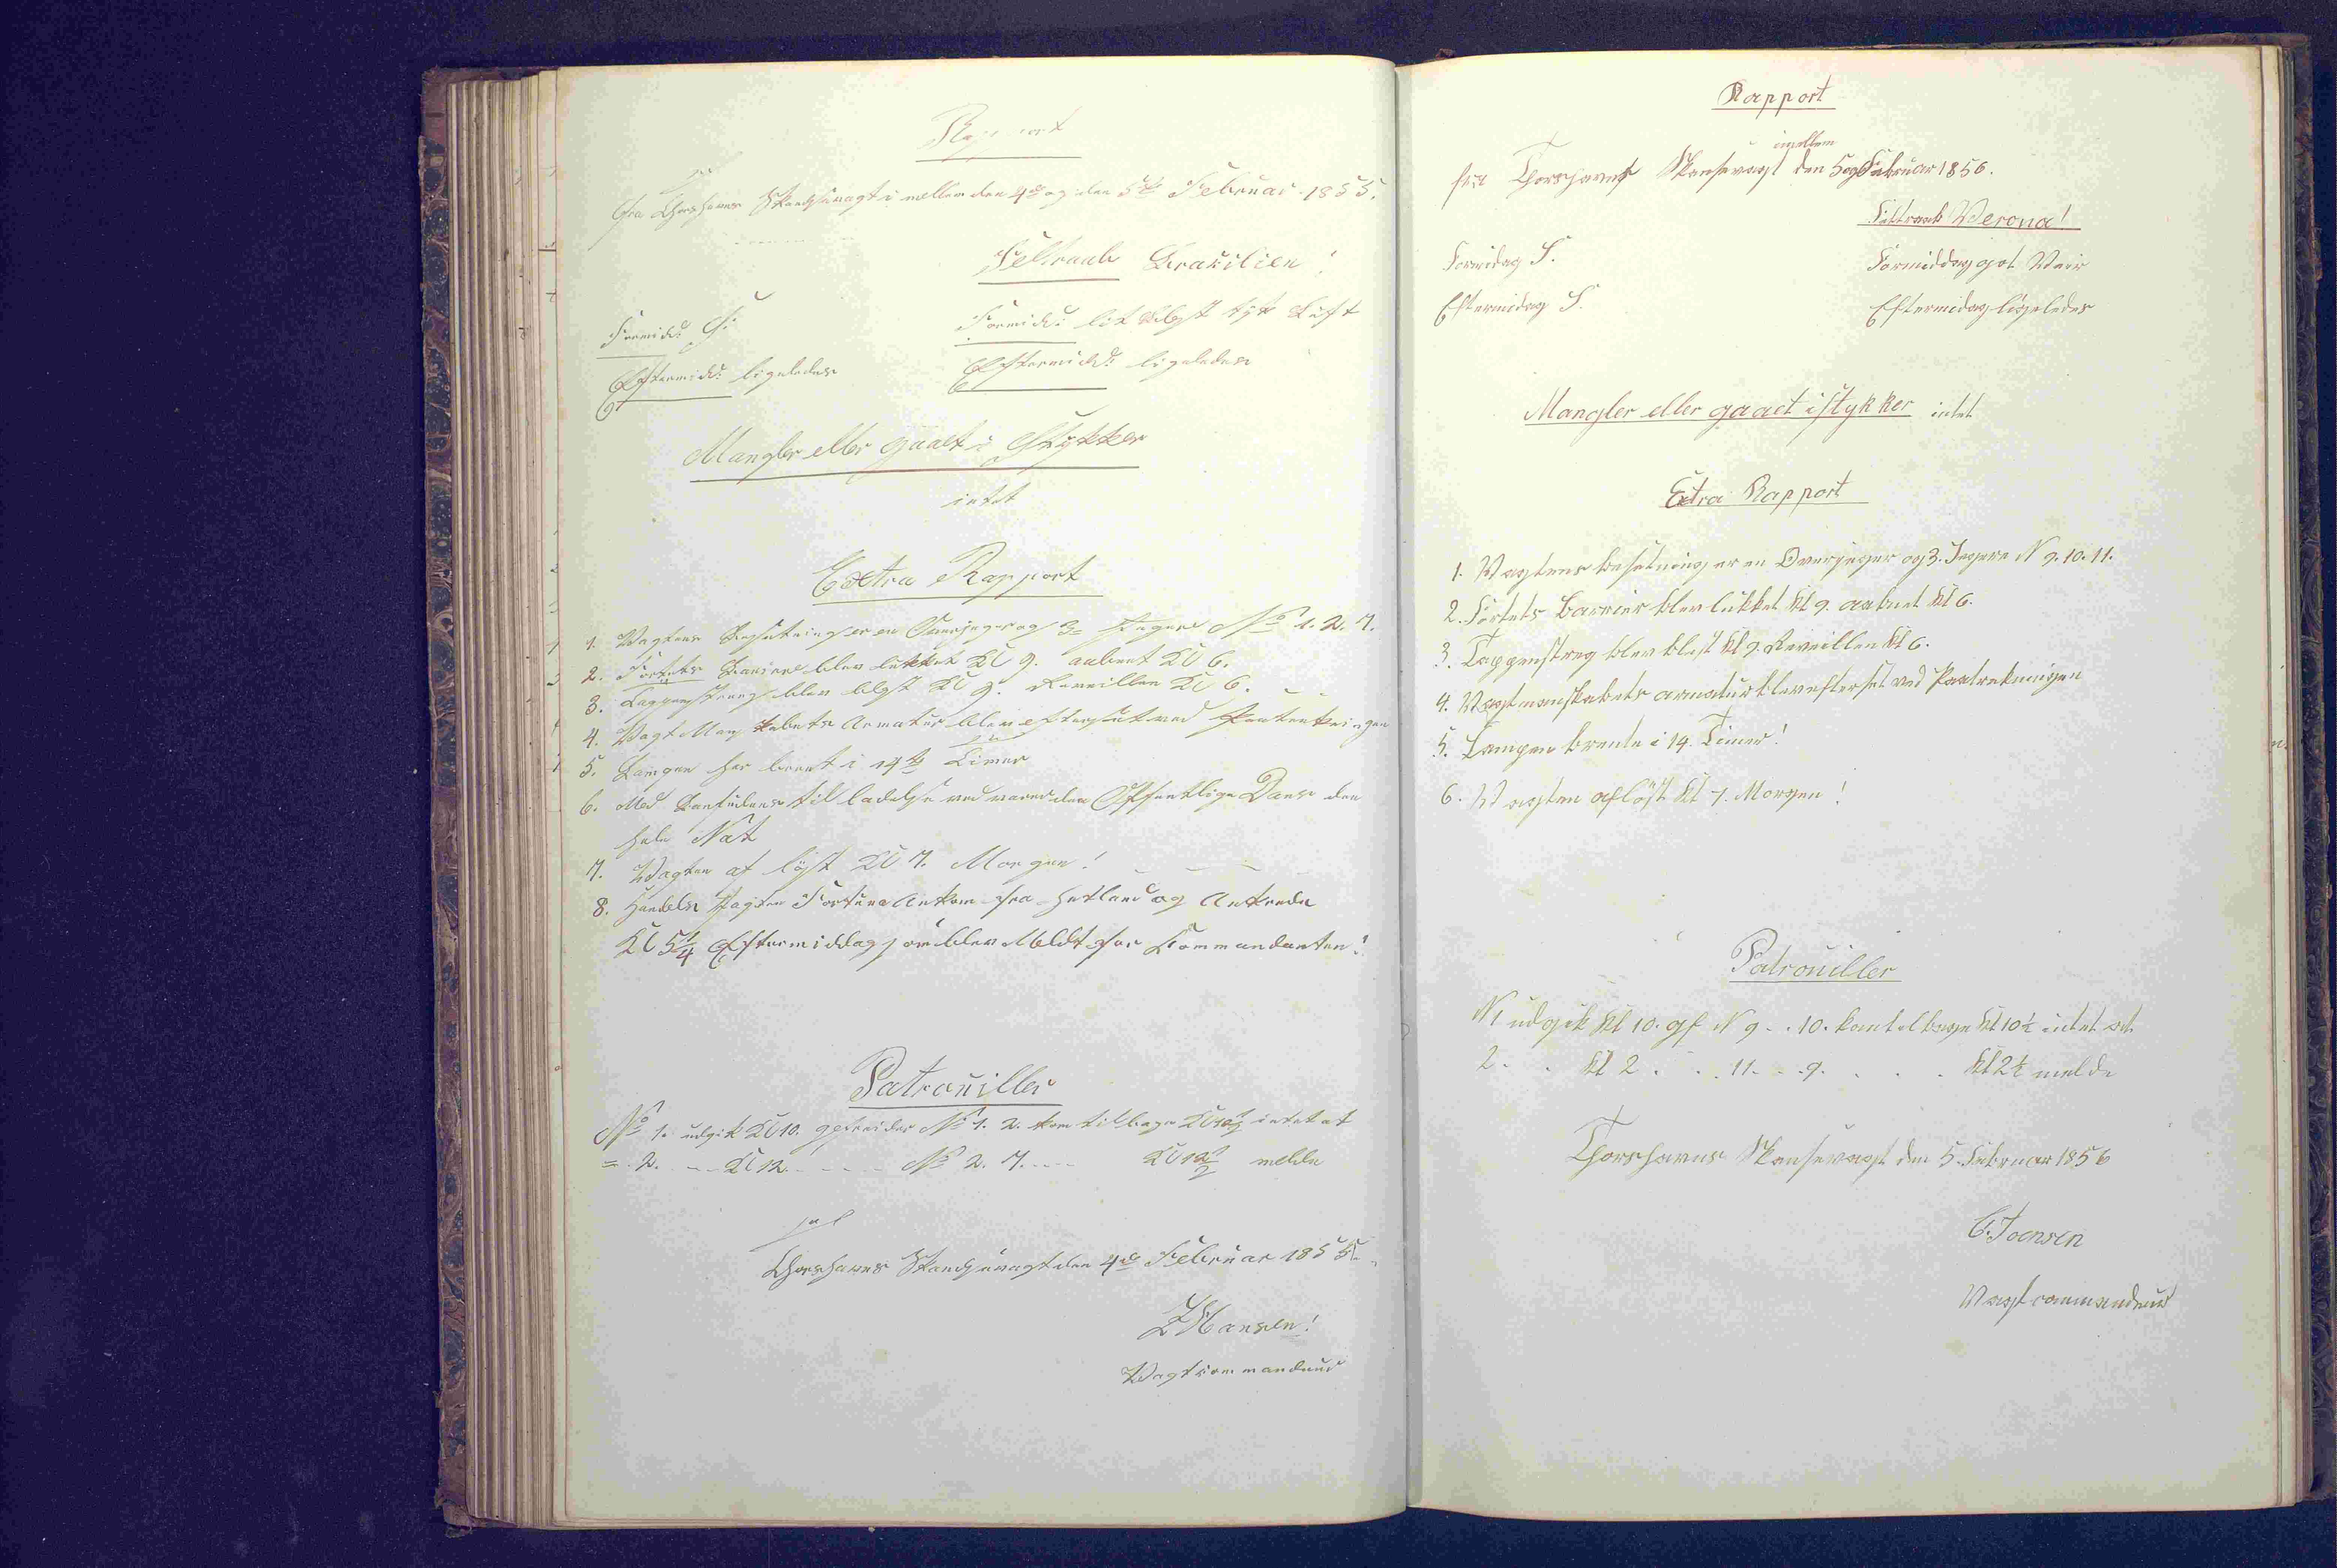 Rapport
fra Thorshavns Skandsevagt i mellem den 4de og den 5te Februar 1855.
Feltraab Brasilien!
Formidd: S:
Formidd: lidt Blæst tyk Luft
Eftermidd: ligeledes
Eftermidd: ligeledes
Mangler eller gaaet i Stykker
intet
Extra Rapport
1. Vagtens Besætning er en Overjeger og 3= Jegere No 1. 2. 7.
2. Fortets Bariere blev lukket Kl 9. aabent Kl 6.
3. Tappenstreg blev blæst Kl 9. Reveillen Kl 6.
4. Vagt Manskabets Armatur blev efterset ved Paatrækningen
5. Lampen har brent i 14 Timer
6. Med tilladelse ved varede den Offentlige Dans den
hele Nat
7. Vagten af løst Kl 7. Morgen!
8. Handels Jagten Fortuna Ankom fra Hetland og Ankrede
Kl 5 1/4 Eftermiddag som blev Meldt for Commandanten!
Patrouiller
No 1. udgik Kl 10. No 1. 2. kom tilbage Kl 10 1/2 intet at
= 2. - - Kl 12 - - - - No 2. 7. - - - - Kl 12 1/2 melde
Thorshavns Skandsevagt den 4de Februar 1855.
Hansen!
Vagtcommandeur
Rapport
imellem
fra Thorshavns Skansevagt den 5 og Februar 1856.
Feltraab Verona!
Formidag S.
Formiddag got Veir
Eftermidag S.
Eftermidag ligeledes
Mangler eller gaaet istykker intet
Extra Rapport
1. Vagtens besætning er en Overjeger og 3. Jegere N 9. 10. 11.
2. Fortets Barrier blev lukket Kl 9. aabnet Kl 6.
3. Tappenstreg blev blest Kl 9. Reveillen Kl 6.
4. Vagtmanskabets armatur blev efterset ved Paatrekningen
5. Lampen brente i 14. Timer!
6. Vagten afløst Kl 7. Morgen!
Patrouiller
N 1 udgik Kl 10. af N 9 - . 10. kom tilbage Kl 10 1/2 intet at
2. . Kl 2 . . . 11. - . 9. . . . Kl 2 1/2 melde
Thorshavns Skansevagt den 5. Februar 1856
Joensen
Vagtcommandeur